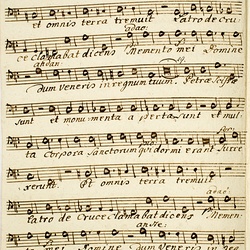 et omnis terra tremuit Latro de Cru
adag:
ce Clamabat dicens Memento mei Domine
andan:
dum veneris in regnum tuum. Petrae scissae
sunt et monumenta aperta sunt et mul
ta Corpora Sanctorum qui dormierant surre
xerunt. Et omnis terra tremuit
adag:
Latro de Cruce Clamabat dicens Memen
andte:
mei Domine dum Veneris in